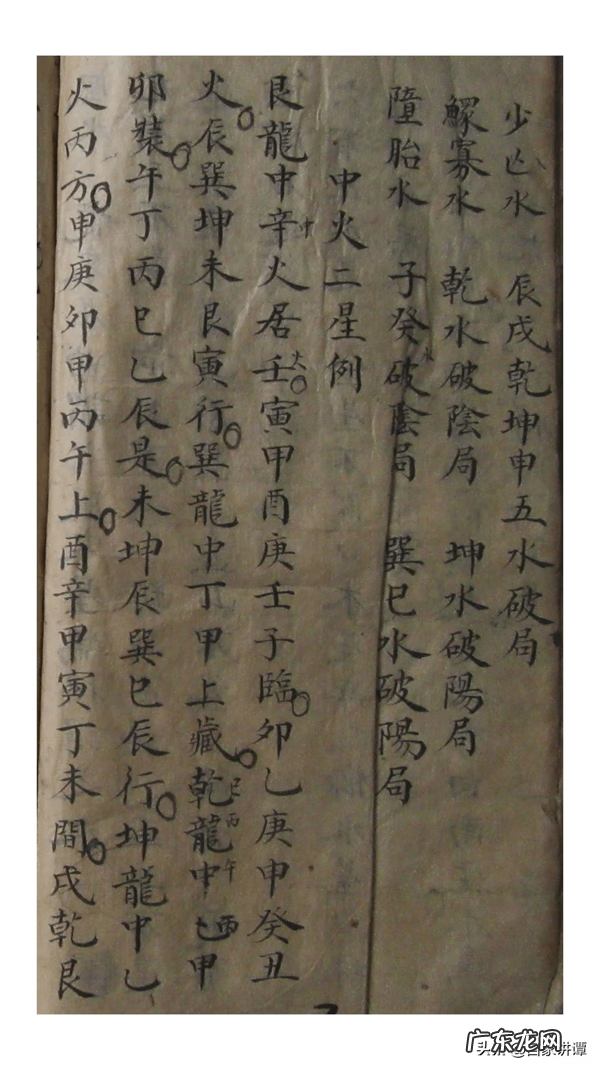 少亡水 辰戌乾坤申五水破局
鰥寡水 乾水破陰局 坤水破陽局
墮胎水 子癸破陰局 巽巳水破陽局
中火二星例
艮龍中辛火居壬寅甲酉庚壬子臨卯乙庚申癸丑
火辰巽坤未艮寅行巽龍中丁甲上藏乾龍中乙甲
卯裝午丁丙巳乙辰是未坤辰巽巳辰行坤龍中乙
火丙方申庚卯甲丙午上酉辛甲寅丁未間戌乾艮
广东龙网